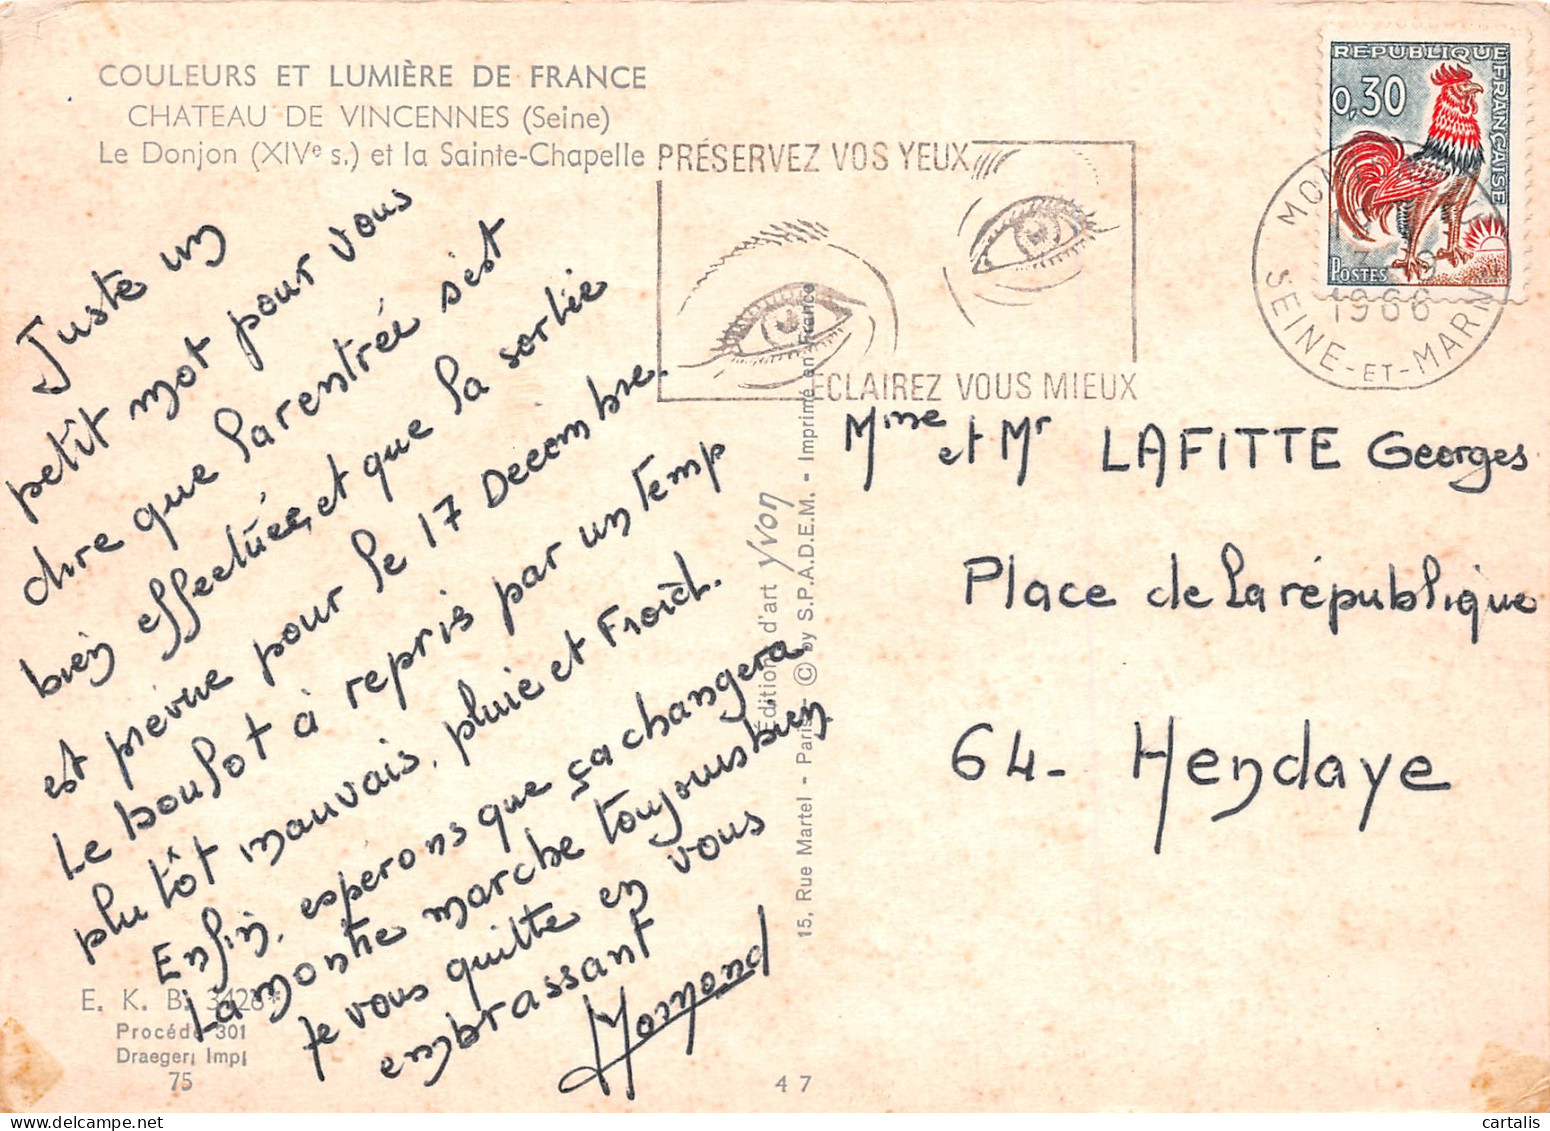 COULEURS ET LUMIÈRE DE FRANCE
CHATEAU DE VINCENNES (Seine)
Le Donjon (XIVe s.) et la Sainte-Chapelle
PRÉSERVEZ VOS YEUX
ECLAIREZ VOUS MIEUX
REPUBLIQUE FRANÇAISE
0,30
POSTES
1966
SEINE-ET-MARN
Juste un
petit mot pour vous
dire que la rentrée s'est
bien effectuée, et que la sortie
est prévue pour le 17 Decembre.
Le boulot à repris par un temp
plutôt mauvais, pluie et Froid.
Enfin, espérons que ça changera
La montre marche toujours bien
Je vous quitte en vous
embrassant
Édition d'art Yvon
15, Rue Martel - Paris - © by S.P.A.D.E.M. - Imprimé en France
Mme et Mr LAFITTE Georges
Place de la république
64- Hendaye
E. K. B. 3428*
Procédé 301
Draeger, Imp.
75
47
cartalis